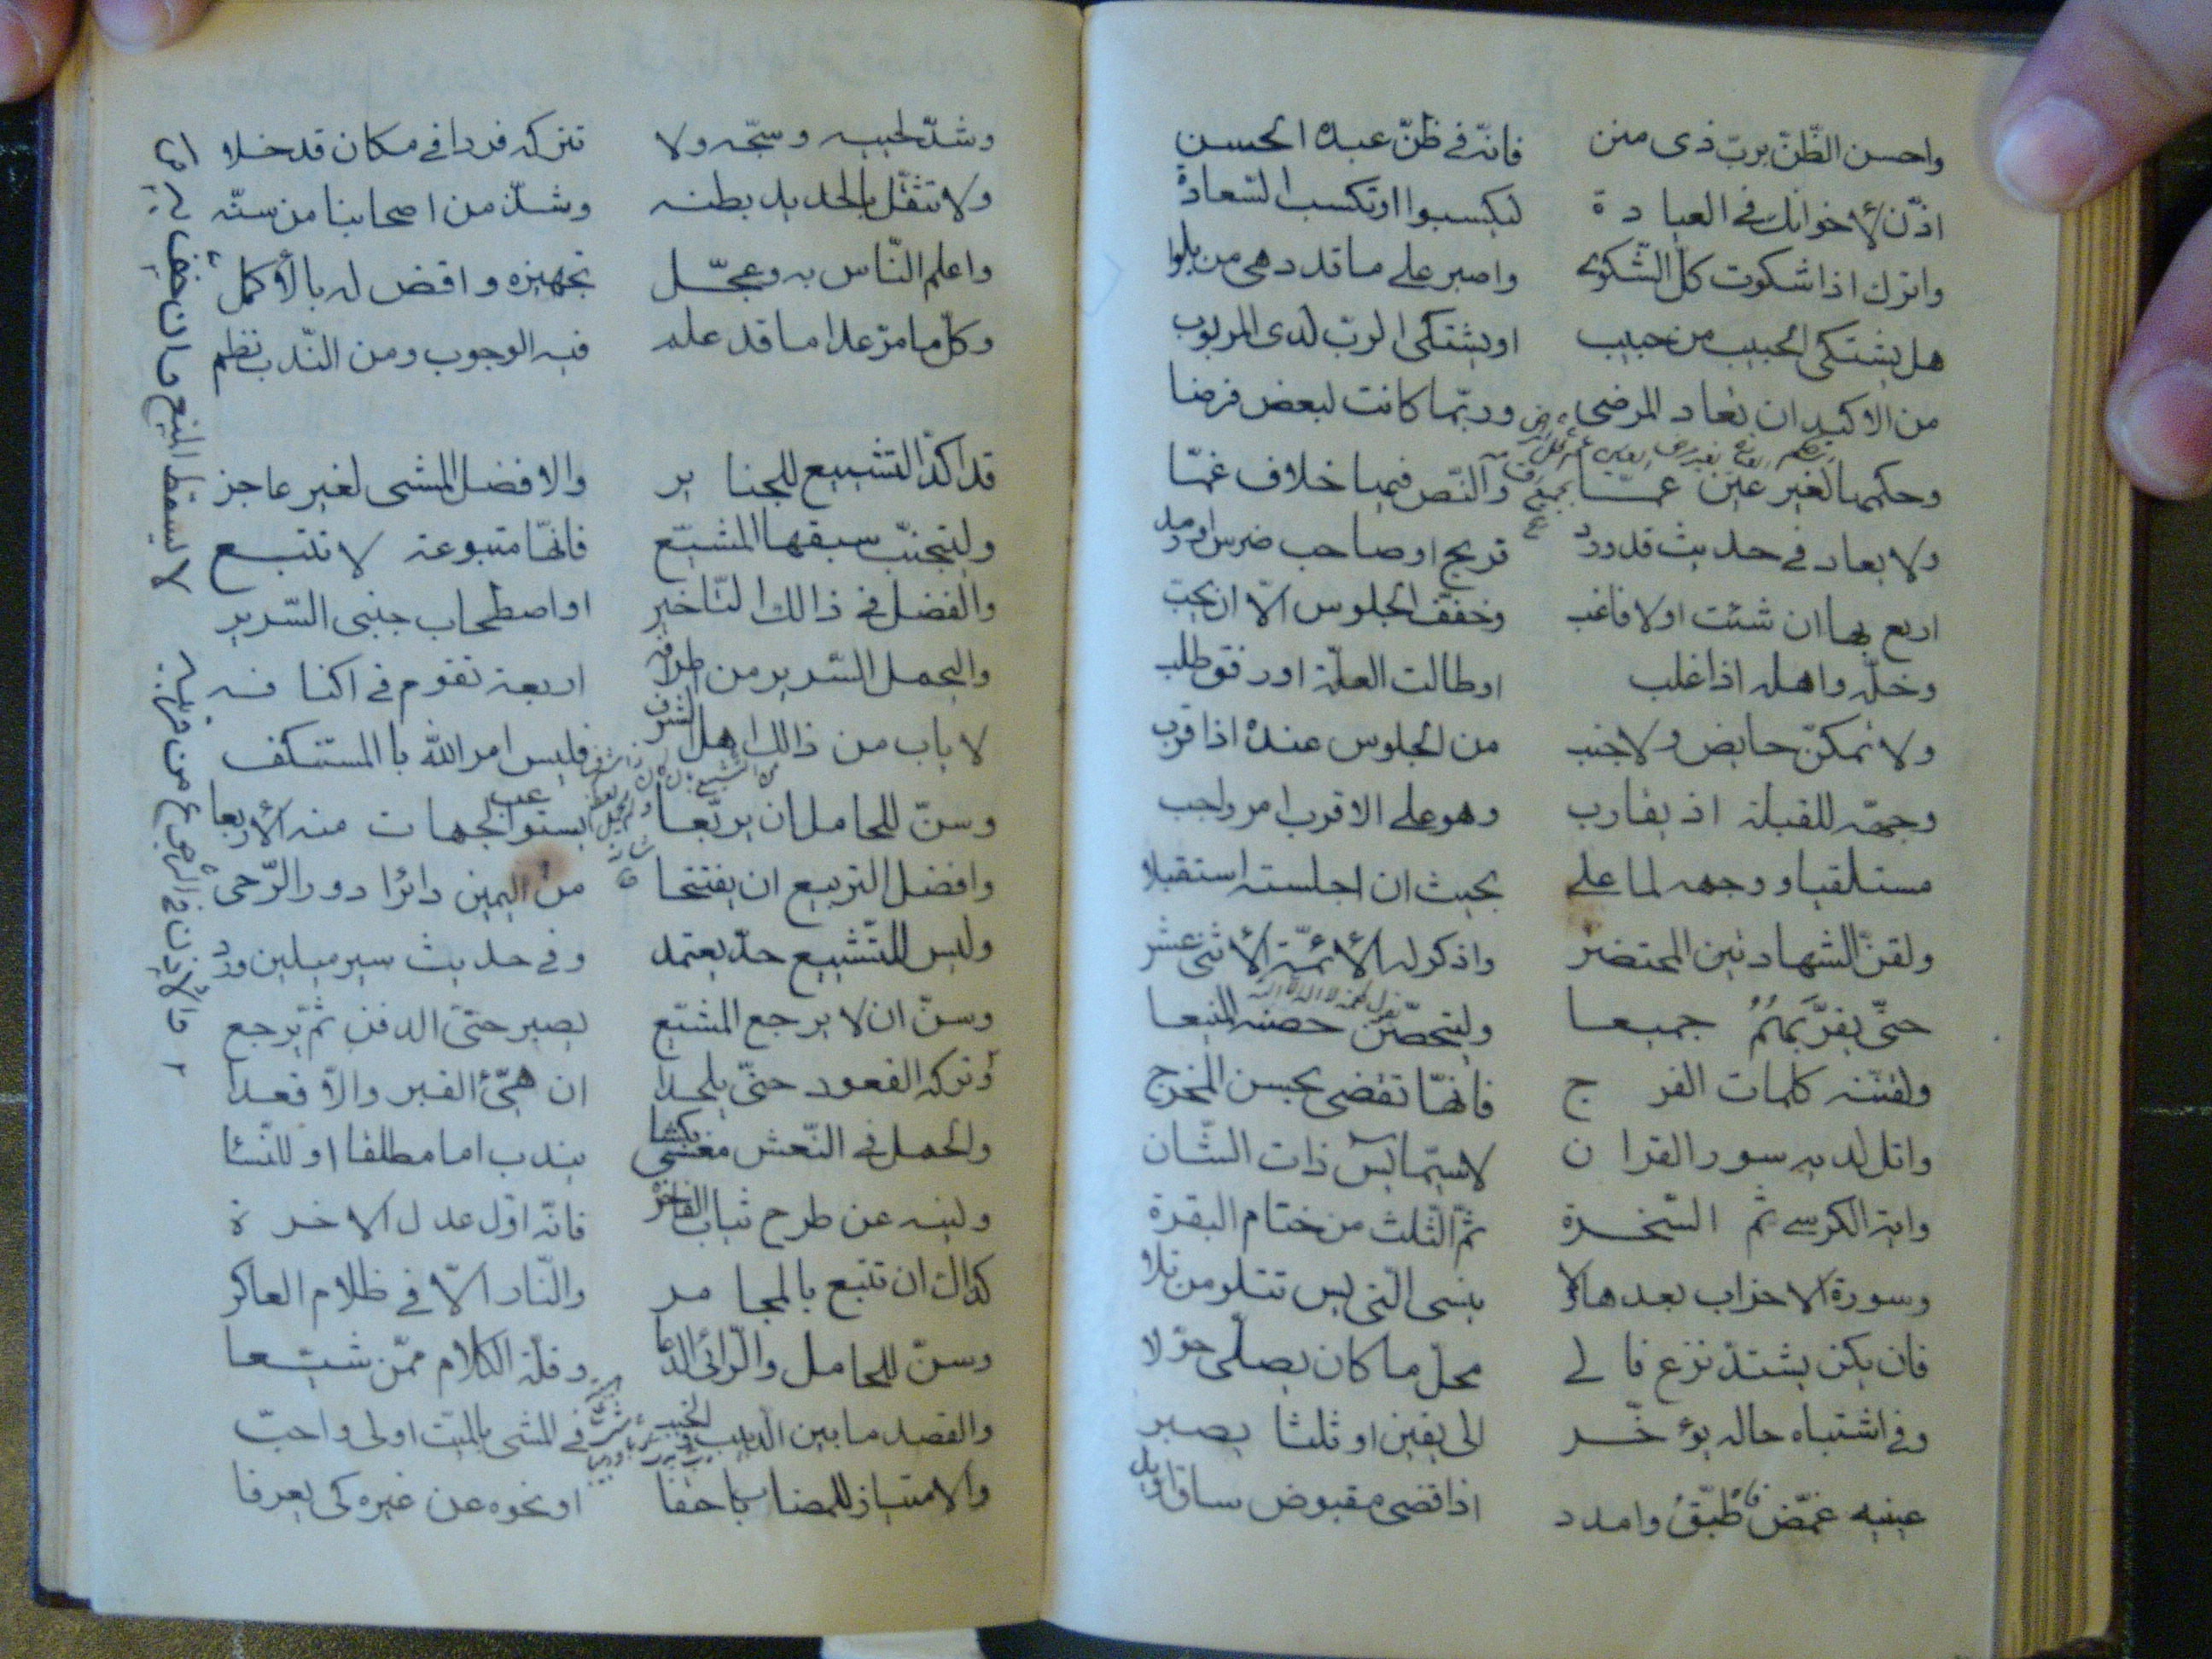 واحسن الظّنّ بربّ ذى منن فانّه فى ظنّ عبده الحسن
اذّن لاخوانك فى العيادة ليكسبوا اوتكسب السّعادة
واترك اذا شكوت كلّ الشّكوى واصبر على ما قد دهى من بلوا
هل يشتكى الحبيب من حبيب او يشتكى الربّ لدى المربوب
من الاكيد ان يعاد المرضى وربّما كانت لبعض فرضا
وحكمها لغير عين عمّا والنّص فيها خلاف غمّا
ولا يعاد فى حديث قد ورد قريح او صاحب ضرس او رمد
اربع بها ان شئت اولا فاغب وخفّف الجلوس الّا ان يحبّ
وخلّه واهله اذا غلب او طالت العلّة او رفق طلب
ولا تمكنّ حايض ولا جنب من الجلوس عنده اذا قرب
وجهّه للقبلة اذ يقارب وهو على الاقرب امر واجب
مستلقيا ووجهه لما على بحيث ان اجلسته استقبلا
ولقنّ الشهادتين المحتضر واذكر له الأئمّة الأثنى عشر
حتّى يقرّ بهم جميعا وليتحصّن حصنه المنيعا
ولقّنّه كلمات الفرج فانّها تقضى بحسن المخرج
واتل لديه سور القران لاسيّما يس ذات الشّان
واية الكرسى ثم السّخرة ثمّ الثّلث من ختام البقرة
وسورة الاحزاب بعدها ولا ينسى الّتى يس تتلو من تلا
فان يكن يشتدّ نزع فالى محلّ ما كان يصلّى حوّلا
وفى اشتباه حاله يؤخّر الى يقين او ثلثا يصبر
عينيه غمّض فاه طبّق وامدد اذا قضى مقبوض ساق او يد
وشدّ لحييه وسجّه ولا تتركه فردا فى مكان قد خلا
ولا تثقّل بالحديد بطنه وشذّ من اصحابنا من سنّه
واعلم النّاس به وعجّل تجهيزه واقض له بالأكمل
وكلّ ما مرّ عدا ما قد علم فيه الوجوب ومن النّدب نظم
قد اكدّ التشييع للجنايز والافضل المشى لغير عاجز
وليتجنّب سبقها المشيّع فانّها متبوعة لا تتبع
والفضل فى ذالك التّاخير او اصطحاب جنبى السّرير
واليحمل السّرير من اطرافه اربعة تقوم فى اكنافه
لا ياب من ذالك اهل الشرف فليس امر الله با المستنكف
وسنّ للحامل ان يربّعا يستوعب الجهات منه الأربعا
وافضل التربيع ان يفتتحا من اليمين دائرا دور الرّحى
وليس للتّشييع حدّ يعتمد وفى حديث سير ميلين ورد
وسنّ ان لا يرجع المشيّع يصبر حتى الدفن ثمّ يرجع
وتركه القعود حتّى يلحدا ان هيّئ القبر والّا قعدا
والحمل فى النّعش مغشّى بكسا يندب اما مطلقا او للنّسا
ولينه عن طرح ثياب الفاخرة فانّه اوّل عدل الاخرة
كذالك ان تتبع بالمجامر والنّار الّا فى ظلام العاكر
وسنّ للحامل والرّائى الدّعا وقلّة الكلام ممّن شيّعا
والقصد ما بين الدبيب والخبب فى المشى بالميّت اولى واحبّ
والامتياز للمصاب بالحفا او نحوه عن غيره كى يعرفا